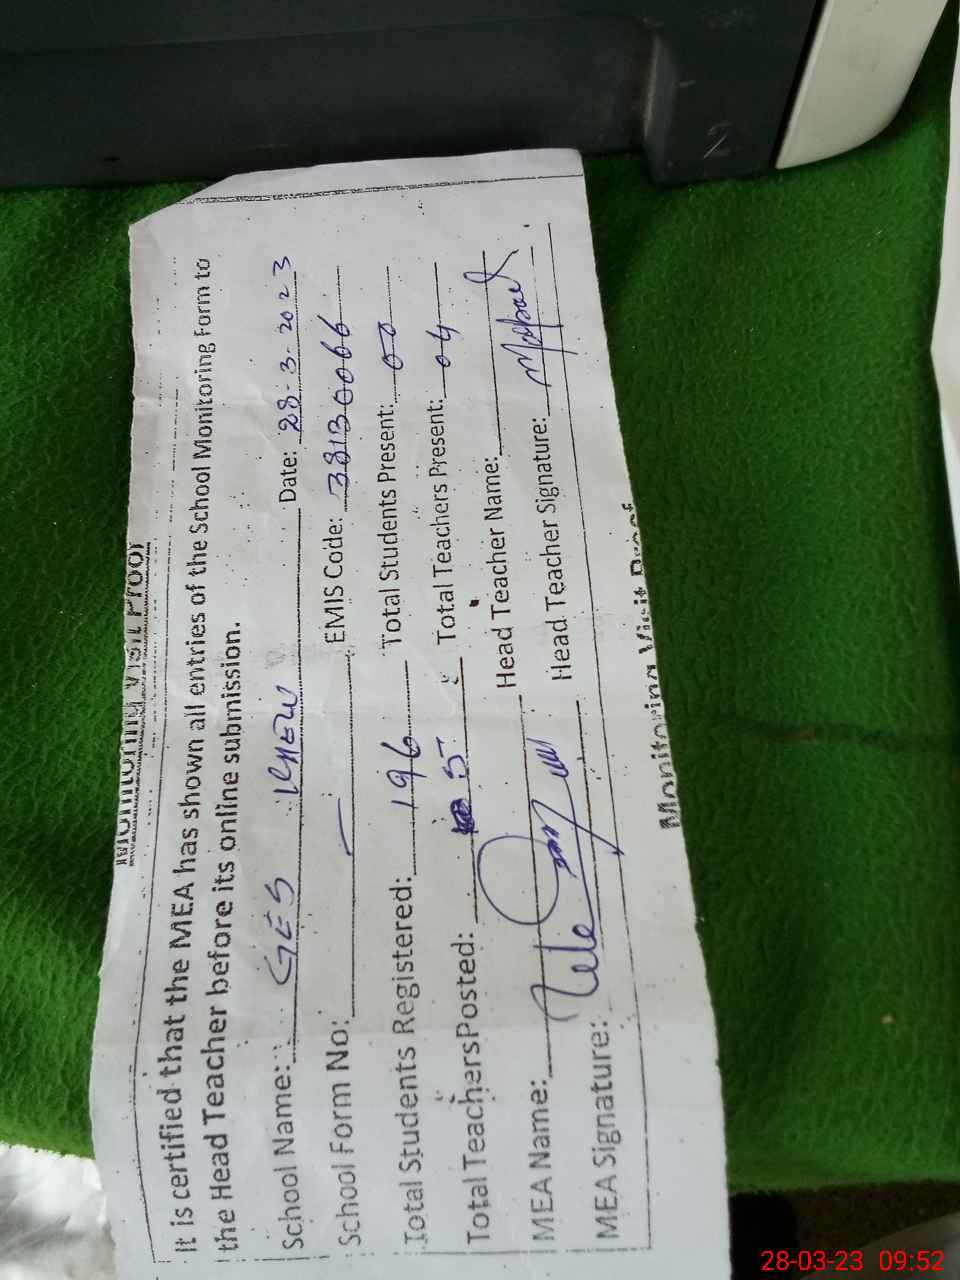 Monitoring Visit Proof
It is certified that the MEA has shown all entries of the School Monitoring Form to
the Head Teacher before its online submission.
School Name: GES KHEW Date: 28-3-2023
School Form No: — EMIS Code: 38130066
Total Students Registered: 196 Total Students Present: 00
Total Teachers Posted: 5 Total Teachers Present: 04
MEA Name: Head Teacher Name:
MEA Signature: Head Teacher Signature:
Monitoring Visit Proof
2
28-03-23 09:52